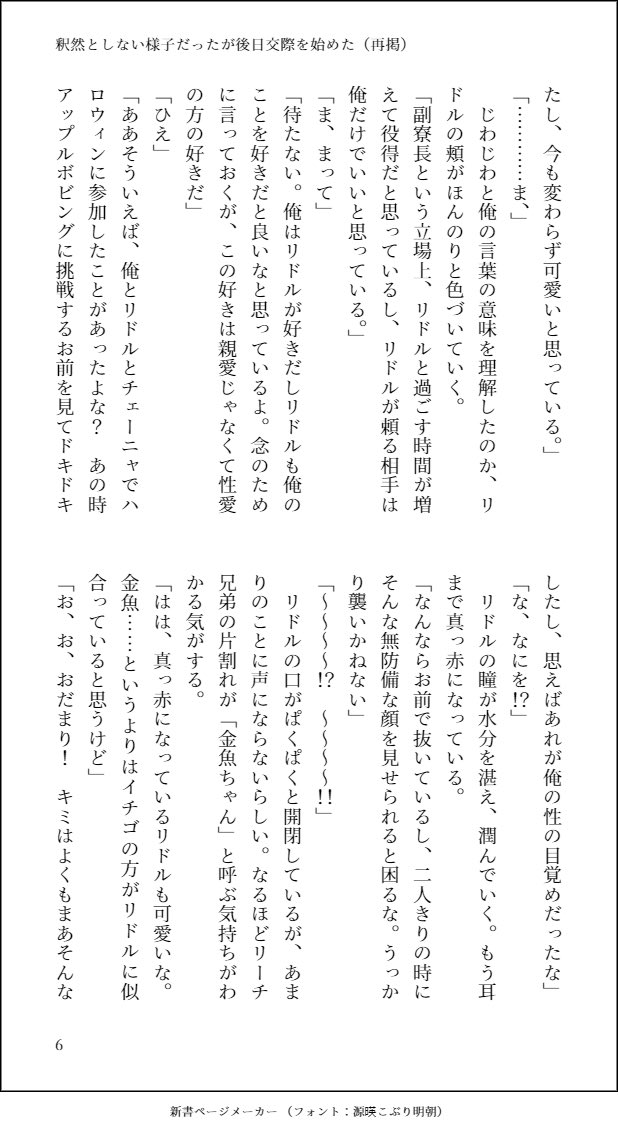 釈然としない様子だったが後日交際を始めた（再掲）
たし、今も変わらず可愛いと思っている。」
「…………ま、」
　じわじわと俺の言葉の意味を理解したのか、リ
ドルの頬がほんのりと色づいていく。
「副寮長という立場上、リドルと過ごす時間が増
えて役得だと思っているし、リドルが頼る相手は
俺だけでいいと思っている。」
「ま、まって」
「待たない。俺はリドルが好きだしリドルも俺の
ことを好きだと良いなと思っているよ。念のため
に言っておくが、この好きは親愛じゃなくて性愛
の方の好きだ」
「ひえ」
「ああそういえば、俺とリドルとチェーニャでハ
ロウィンに参加したことがあったよな？　あの時
アップルボビングに挑戦するお前を見てドキドキ
したし、思えばあれが俺の性の目覚めだったな」
「な、なにを!?」
　リドルの瞳が水分を湛え、潤んでいく。もう耳
まで真っ赤になっている。
「なんならお前で抜いているし、二人きりの時に
そんな無防備な顔を見せられると困るな。うっか
り襲いかねない」
「～～～～!?　～～～～!!」
　リドルの口がぱくぱくと開閉しているが、あま
りのことに声にならないらしい。なるほどリーチ
兄弟の片割れが「金魚ちゃん」と呼ぶ気持ちがわ
かる気がする。
「はは、真っ赤になっているリドルも可愛いな。
金魚……というよりはイチゴの方がリドルに似
合っていると思うけど」
「お、お、おだまり！　キミはよくもまあそんな
6
新書ページメーカー（フォント：源暎こぶり明朝）